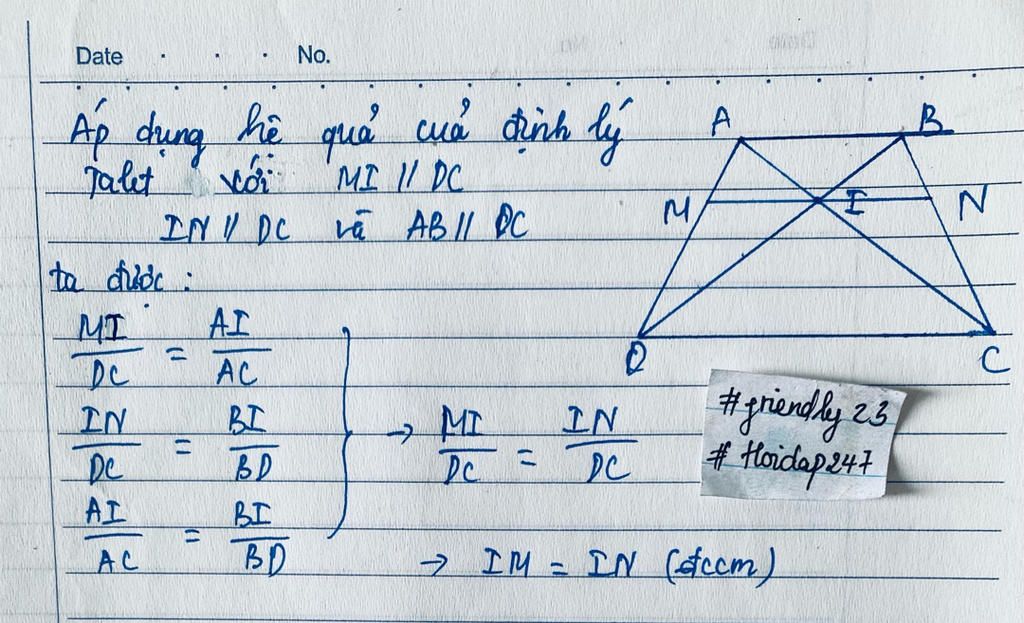 Date . . . No.
Áp dụng hệ quả của định lý
Talet với MI // DC
IN // DC và AB // DC
ta được :
MI/DC = AI/AC
IN/DC = BI/BD
AI/AC = BI/BD
→ MI/DC = IN/DC
→ IM = IN (đccm)
A B
M I N
D C
#friendly 23
# Hoidap247